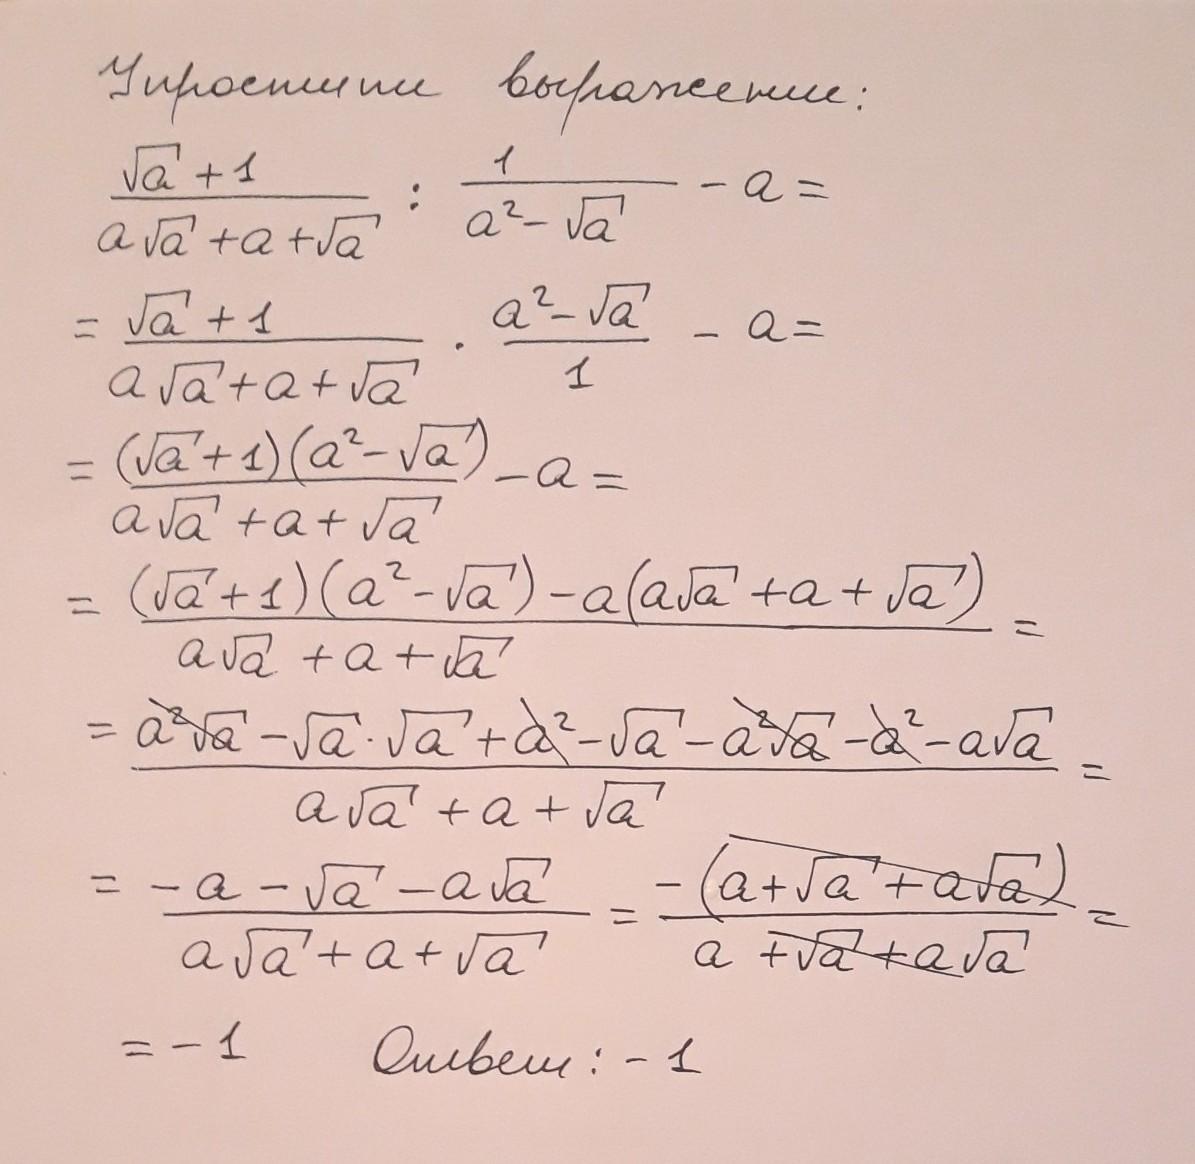 Упростити выражение:
(√a + 1)/(a√a + a + √a) : 1/(a² - √a) - a =
= (√a + 1)/(a√a + a + √a) · (a² - √a)/1 - a =
= ((√a + 1)(a² - √a))/(a√a + a + √a) - a =
= ((√a + 1)(a² - √a) - a(a√a + a + √a))/(a√a + a + √a) =
= (a²√a - √a · √a + a² - √a - a²√a - a² - a√a)/(a√a + a + √a) =
= (-a - √a - a√a)/(a√a + a + √a) = (-(a + √a + a√a))/(a + √a + a√a) =
= -1 Ответ: -1